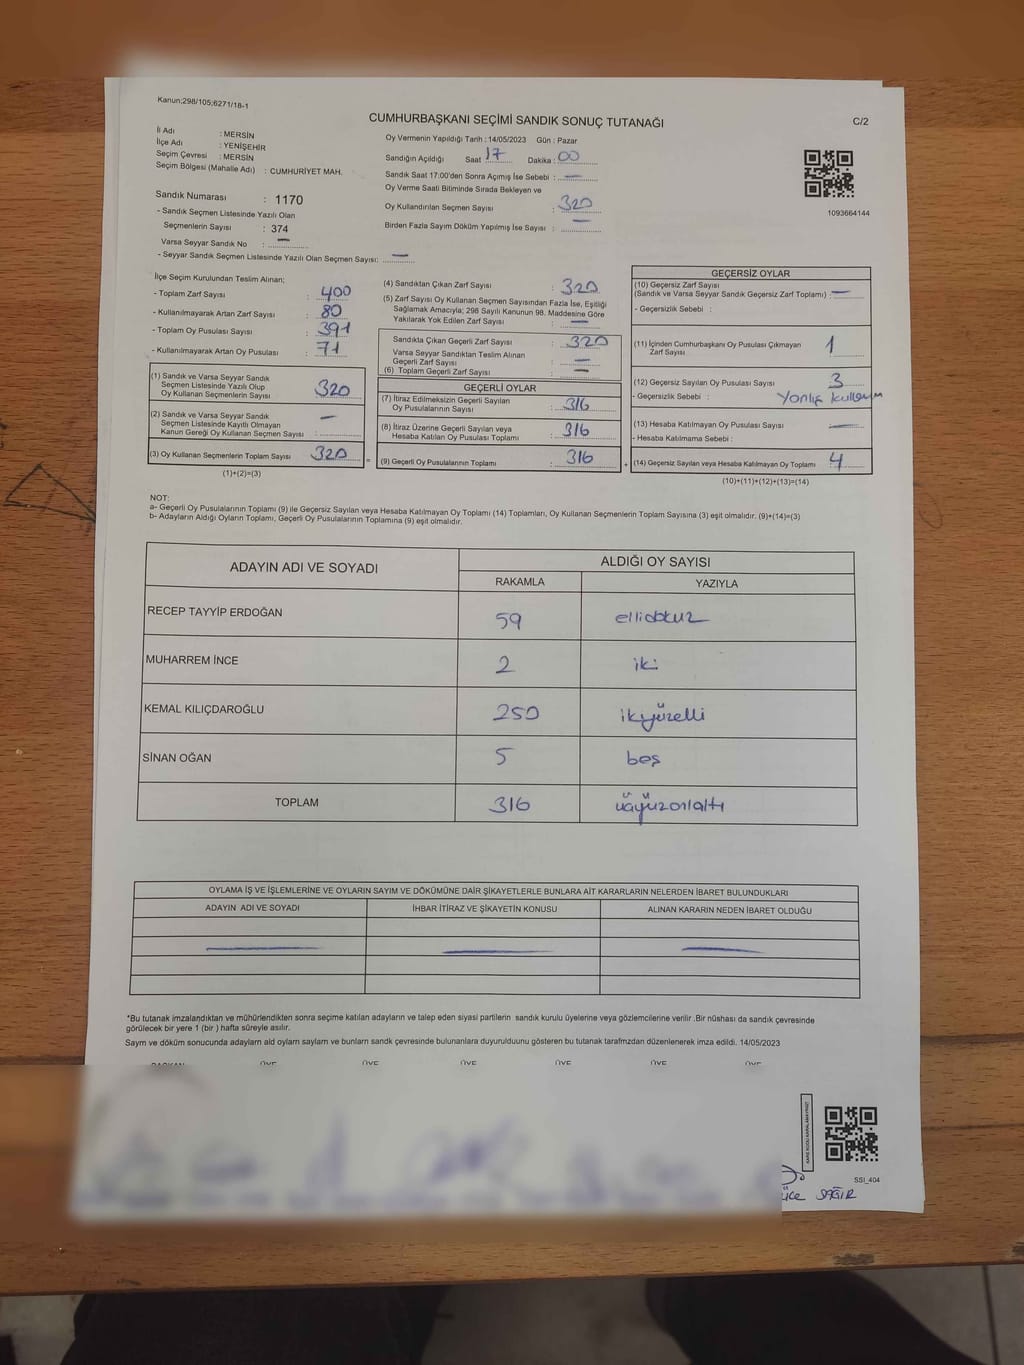 Kanun;298/105;6271/18-1
CUMHURBAŞKANI SEÇİMİ SANDIK SONUÇ TUTANAĞI
C/2
İl Adı : MERSİN
İlçe Adı : YENİŞEHİR
Seçim Çevresi : MERSİN
Seçim Bölgesi (Mahalle Adı) : CUMHURİYET MAH.
Sandık Numarası : 1170
- Sandık Seçmen Listesinde Yazılı Olan
Seçmenlerin Sayısı : 374
Varsa Seyyar Sandık No : —
- Seyyar Sandık Seçmen Listesinde Yazılı Olan Seçmen Sayısı: —
Oy Vermenin Yapıldığı Tarih : 14/05/2023 Gün : Pazar
Sandığın Açıldığı Saat 17 Dakika : 00
Sandık Saat 17:00'den Sonra Açımış İse Sebebi : —
Oy Verme Saati Bitiminde Sırada Bekleyen ve
Oy Kullandırılan Seçmen Sayısı : 320
Birden Fazla Sayım Döküm Yapılmış İse Sayısı : —
1093664144
İlçe Seçim Kurulundan Teslim Alınan;
- Toplam Zarf Sayısı : 400
- Kullanılmayarak Artan Zarf Sayısı : 80
- Toplam Oy Pusulası Sayısı : 391
- Kullanılmayarak Artan Oy Pusulası : 71
(1) Sandık ve Varsa Seyyar Sandık
Seçmen Listesinde Yazılı Olup
Oy Kullanan Seçmenlerin Sayısı 320
(2) Sandık ve Varsa Seyyar Sandık
Seçmen Listesinde Kayıtlı Olmayan
Kanun Gereği Oy Kullanan Seçmen Sayısı : —
(3) Oy Kullanan Seçmenlerin Toplam Sayısı 320
(1)+(2)=(3)
(4) Sandıktan Çıkan Zarf Sayısı : 320
(5) Zarf Sayısı Oy Kullanan Seçmen Sayısından Fazla İse, Eşitliği
Sağlamak Amacıyla; 298 Sayılı Kanunun 98. Maddesine Göre
Yakılarak Yok Edilen Zarf Sayısı : —
Sandıkta Çıkan Geçerli Zarf Sayısı : 320
Varsa Seyyar Sandıktan Teslim Alınan
Geçerli Zarf Sayısı : —
(6) Toplam Geçerli Zarf Sayısı : —
GEÇERLİ OYLAR
(7) İtiraz Edilmeksizin Geçerli Sayılan
Oy Pusulalarının Sayısı : 316
(8) İtiraz Üzerine Geçerli Sayılan veya
Hesaba Katılan Oy Pusulası Toplamı : 316
= (9) Geçerli Oy Pusulalarının Toplamı : 316 +
GEÇERSİZ OYLAR
(10) Geçersiz Zarf Sayısı
(Sandık ve Varsa Seyyar Sandık Geçersiz Zarf Toplamı) : —
- Geçersizlik Sebebi :
(11) İçinden Cumhurbaşkanı Oy Pusulası Çıkmayan
Zarf Sayısı 1
(12) Geçersiz Sayılan Oy Pusulası Sayısı 3
- Geçersizlik Sebebi : Yanlış kullanım
(13) Hesaba Katılmayan Oy Pusulası Sayısı —
- Hesaba Katılmama Sebebi :
(14) Geçersiz Sayılan veya Hesaba Katılmayan Oy Toplamı 4
(10)+(11)+(12)+(13)=(14)
NOT:
a- Geçerli Oy Pusulalarının Toplamı (9) ile Geçersiz Sayılan veya Hesaba Katılmayan Oy Toplamı (14) Toplamları, Oy Kullanan Seçmenlerin Toplam Sayısına (3) eşit olmalıdır. (9)+(14)=(3)
b- Adayların Aldığı Oyların Toplamı, Geçerli Oy Pusulalarının Toplamına (9) eşit olmalıdır.
ADAYIN ADI VE SOYADI
ALDIĞI OY SAYISI
RAKAMLA YAZIYLA
RECEP TAYYİP ERDOĞAN 59 ellidokuz
MUHARREM İNCE 2 iki
KEMAL KILIÇDAROĞLU 250 ikiyüzelli
SİNAN OĞAN 5 beş
TOPLAM 316 üçyüzonaltı
OYLAMA İŞ VE İŞLEMLERİNE VE OYLARIN SAYIM VE DÖKÜMÜNE DAİR ŞİKAYETLERLE BUNLARA AİT KARARLARIN NELERDEN İBARET BULUNDUKLARI
ADAYIN ADI VE SOYADI İHBAR İTİRAZ VE ŞİKAYETİN KONUSU ALINAN KARARIN NEDEN İBARET OLDUĞU
*Bu tutanak imzalandıktan ve mühürlendikten sonra seçime katılan adayların ve talep eden siyasi partilerin sandık kurulu üyelerine veya gözlemcilerine verilir .Bir nüshası da sandık çevresinde
görülecek bir yere 1 (bir ) hafta süreyle asılır.
Saym ve döküm sonucunda adaylarn ald oylarn saylarn ve bunlarn sandk çevresinde bulunanlara duyurulduunu gösteren bu tutanak tarafmzdan düzenlenerek imza edildi. 14/05/2023
BAŞKAN ÜYE ÜYE ÜYE ÜYE ÜYE ÜYE
SSI_404
SAĞIR